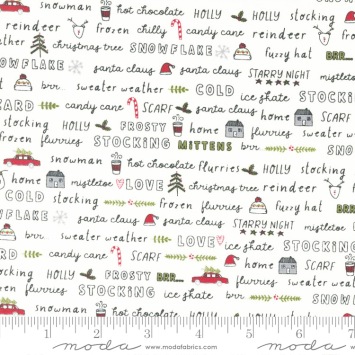 hot chocolate HOLLY stocking
reindeer frozen chilly candy cane
christmas tree SNOWFLAKE fuzzy hat BRR...
SNOWFLAKE santa claus santa claus STARRY NIGHT
sweater weather COLD
candy cane SCARF ice skate STOCKING
stocking HOLLY FROSTY home flurries
frozen flurries STOCKING MITTENS brr.
snowman hot chocolate flurries HOLLY
home mistletoe LOVE christmas tree reindeer
COLD stocking frozen fuzzy hat
SNOWFLAKE santa claus santa claus STARRY NIGHT mistletoe
brr. sweater weather LOVE ice skate STOCKING
candy cane SCARF home SCARF
stocking HOLLY FROSTY BRR... frozen flurries
frozen flurries STOCKING ice skate COLD
snowman hot chocolate flurries HOLLY
1 2 3 4 5 6 7
moda www.modafabrics.com moda